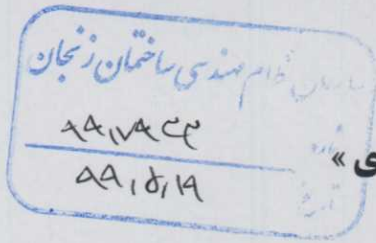 سازمان نظام مهندسی ساختمان زنجان
ی »
شماره
تاریخ ۹۹,۵,۱۹